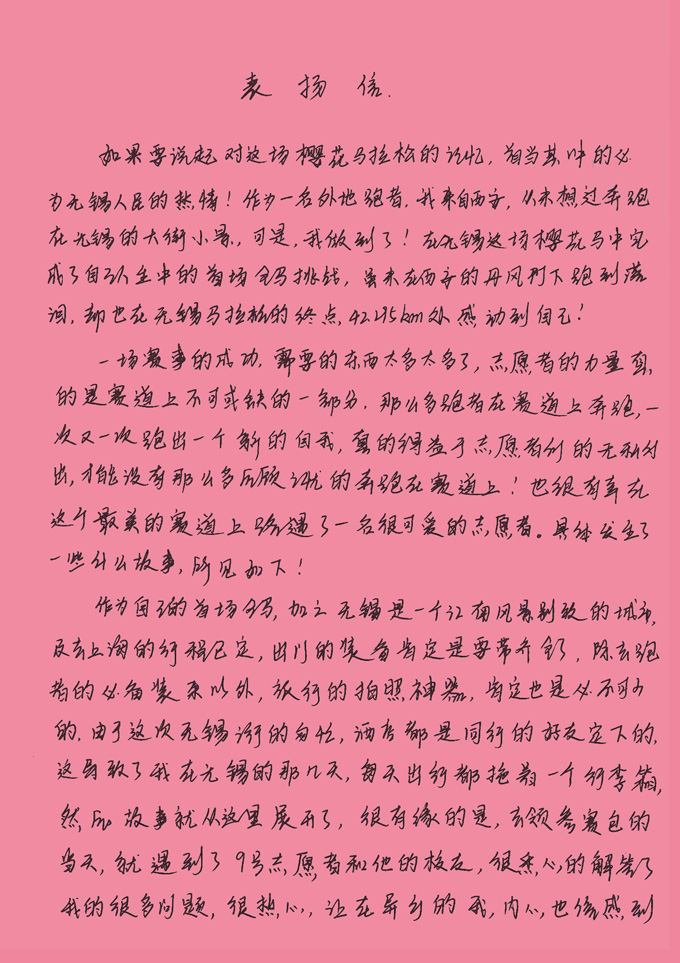 表扬信.
如果要说起对这场樱花马拉松的记忆,首当其冲的必
为无锡人民的热情!作为一名外地跑者,我来自西安,从未想过奔跑
在无锡的大街小景,可是,我做到了!在无锡这场樱花马中完
成了自己人生中的首场全马挑战,虽未在西安的丹凤门下跑到落
泪,却也在无锡马拉松的终点,42.195km处感动到自己!
一场赛事的成功,需要的东西太多太多了,志愿者的力量真
的是赛道上不可或缺的一部分,那么多跑者在赛道上奔跑,一
次又一次跑出一个新的自我,真的得益于志愿者们的无私付
出,才能没有那么多后顾之忧的奔跑在赛道上!也很有幸在
这个最美的赛道上路遇了一名很可爱的志愿者。具体发生了
一些什么故事,所见如下!
作为自己的首场全马,加之无锡是一个江南风景别致的城市,
及去上海的行程已定,出门的装备肯定是要带齐全,除去跑
者的必备装束以外,旅行的拍照神器,肯定也是必不可少
的.由于这次无锡之行的匆忙,酒店都是同行的好友定下的,
这导致了我在无锡的那几天,每天出行都拖着一个行李箱,
然后故事就从这里展开了,很有缘的是,去领参赛包的
当天,就遇到了9号志愿者和他的校友,很热心的解答了
我的很多问题,很热心,让在异乡的我,内心也倍感到